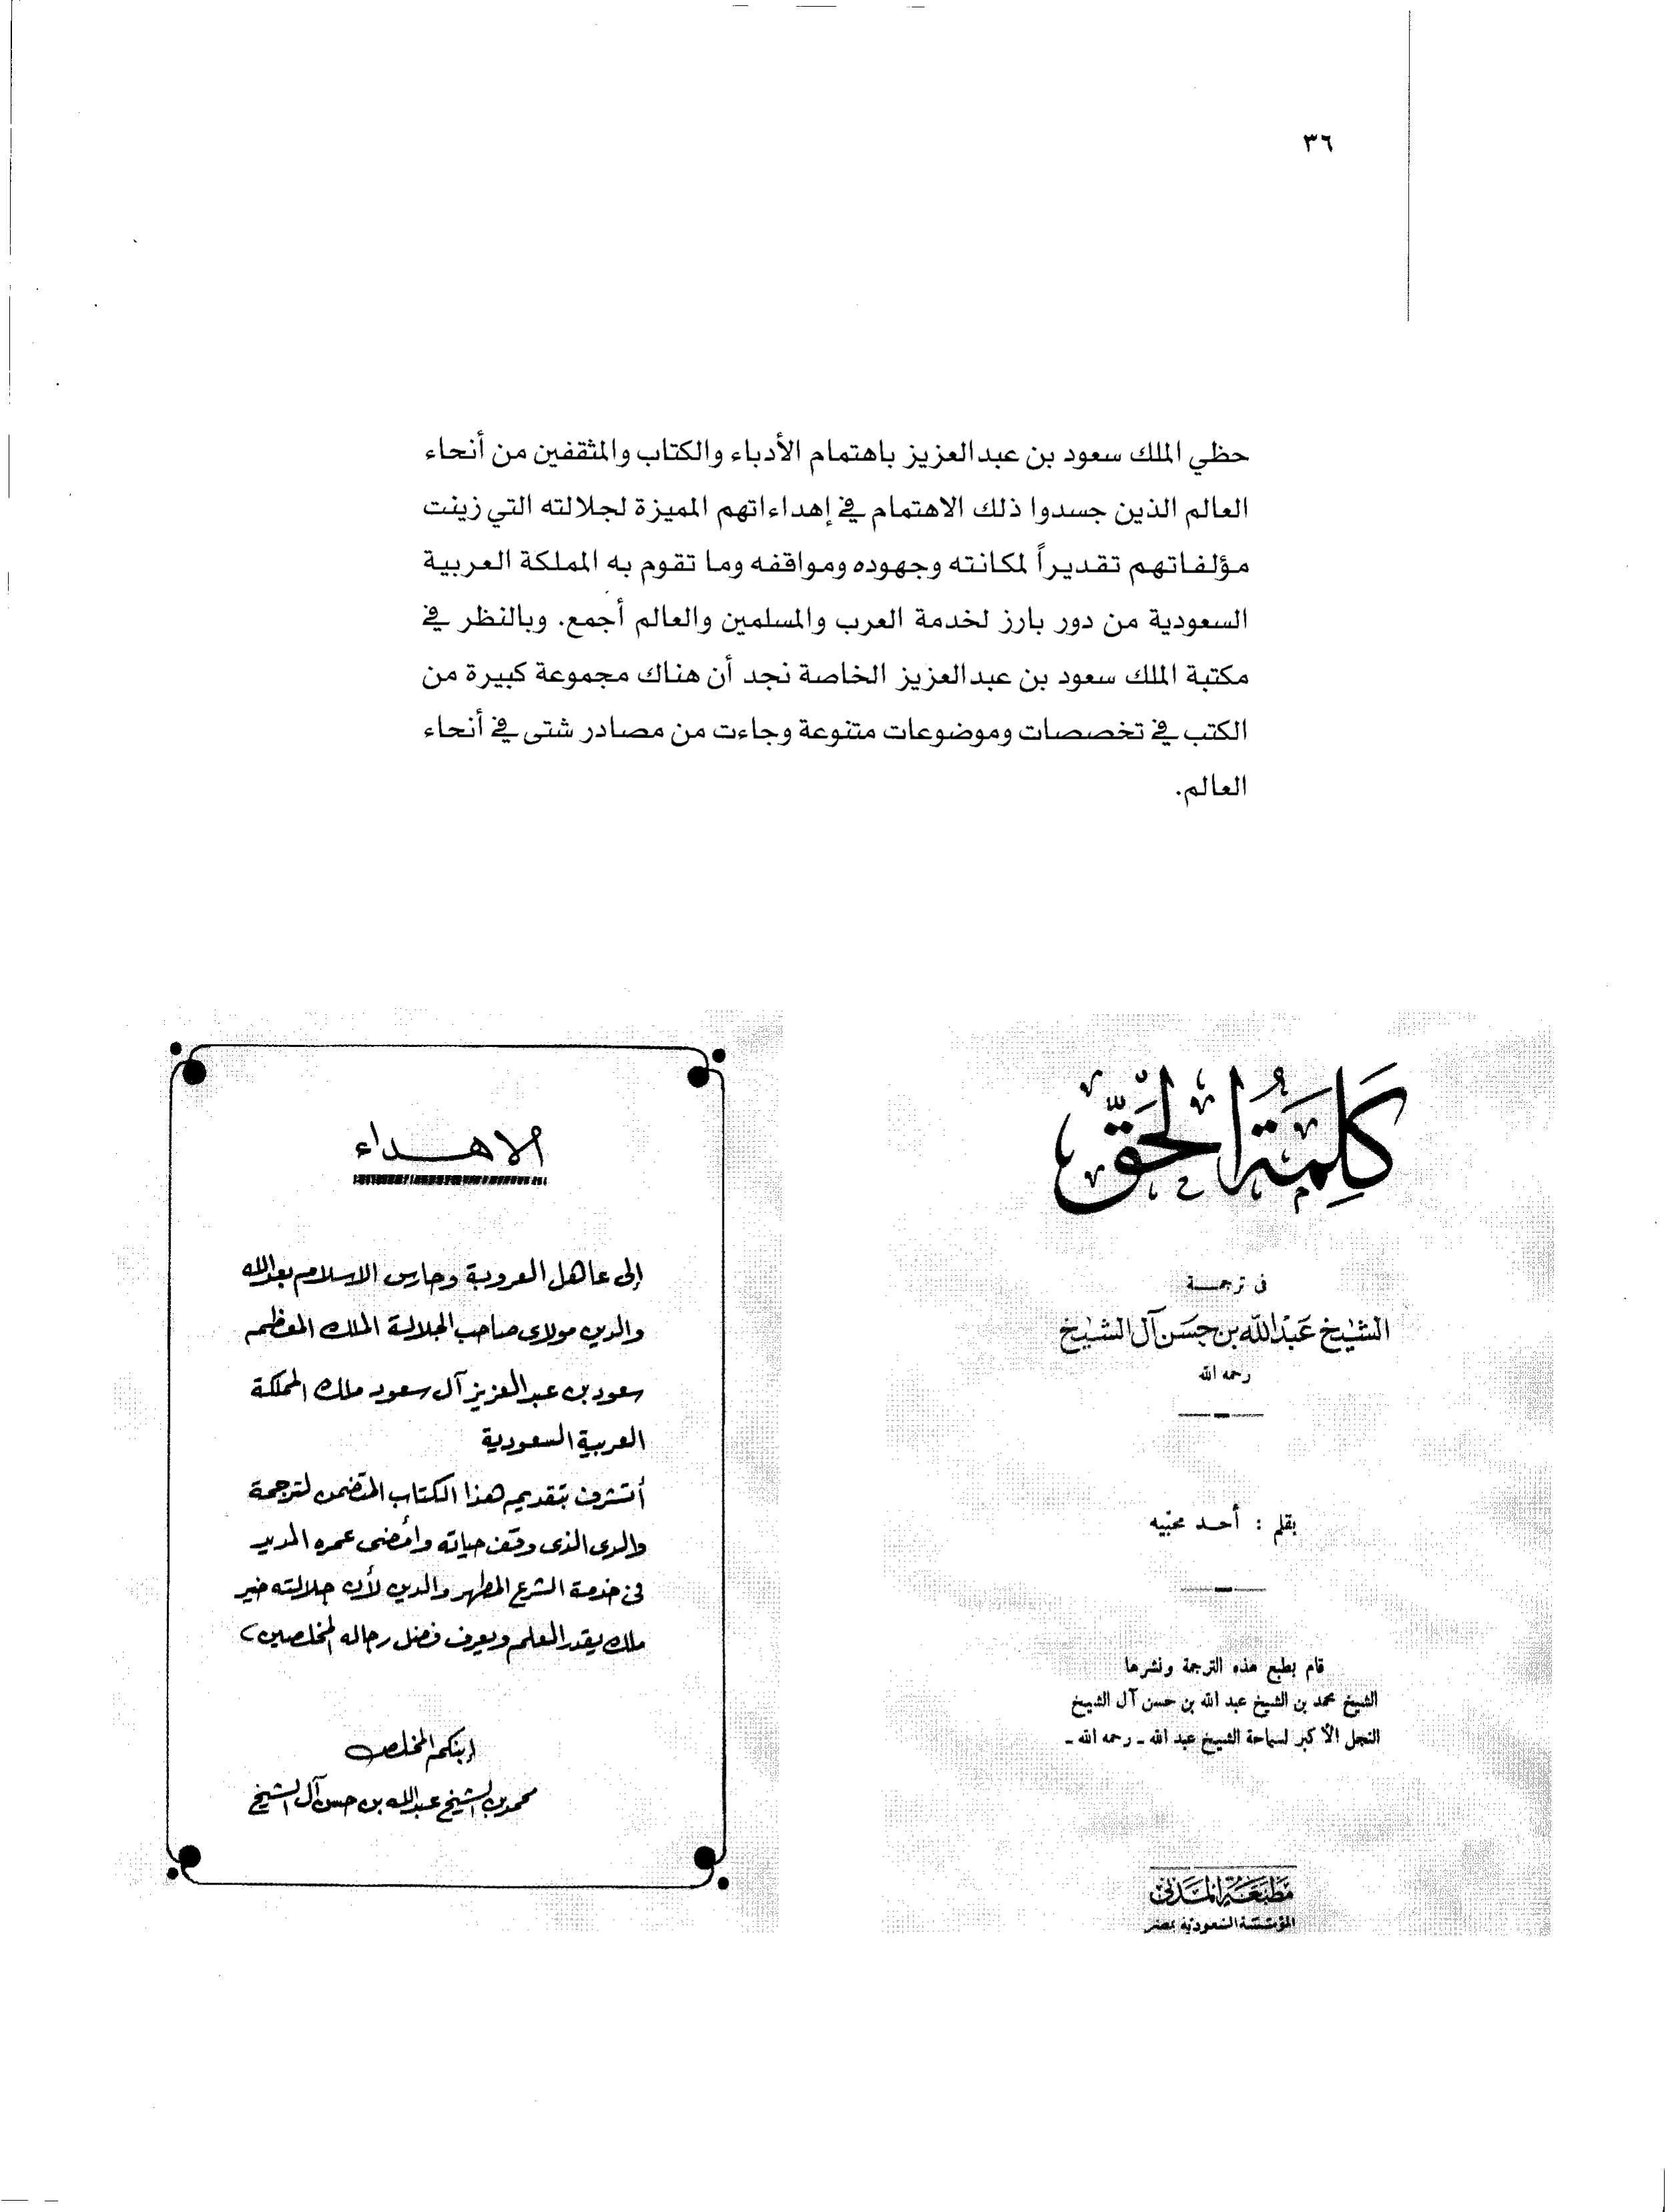 ٣٦
حظي الملك سعود بن عبدالعزيز باهتمام الأدباء والكتاب والمثقفين من أنحاء
العالم الذين جسدوا ذلك الاهتمام في إهداءاتهم المميزة لجلالته التي زينت
مؤلفاتهم تقديراً لمكانته وجهوده ومواقفه وما تقوم به المملكة العربية
السعودية من دور بارز لخدمة العرب والمسلمين والعالم أجمع. وبالنظر في
مكتبة الملك سعود بن عبدالعزيز الخاصة نجد أن هناك مجموعة كبيرة من
الكتب في تخصصات وموضوعات متنوعة وجاءت من مصادر شتى في أنحاء
العالم.
كَلِمَةُ الحَقّ
فى ترجمـــة
الشيخ عبد الله بن حسن آل الشيخ
رحمه الله
بقلم : أحمد
قام بطبع هذه الترجمة ونشرها
الشيخ محمد بن الشيخ عبد الله بن حسن آل الشيخ
النجل الأكبر لسماحة الشيخ عبد الله ـ رحمه الله ـ
مطبعة المدنى
المؤسسة السعودية بمصر
الاهـــداء
إلى عاهل العروبة وحارس الاسلام بعد الله
والدى مولاى صاحب الجلالة الملك المعظم
سعود بن عبد العزيز آل سعود ملك المملكة
العربية السعودية
أتشرف بتقديم هذا الكتاب المتضمن لترجمة
والدى الذى وقف حياته وأمضى عمره المديد
فى خدمة الشرع المطهر والدين لأن جلالته خير
ملك يقدر العلم ويعرف فضل رجاله المخلصين
ابنكم المخلص
محمد بن الشيخ عبد الله بن حسن آل الشيخ